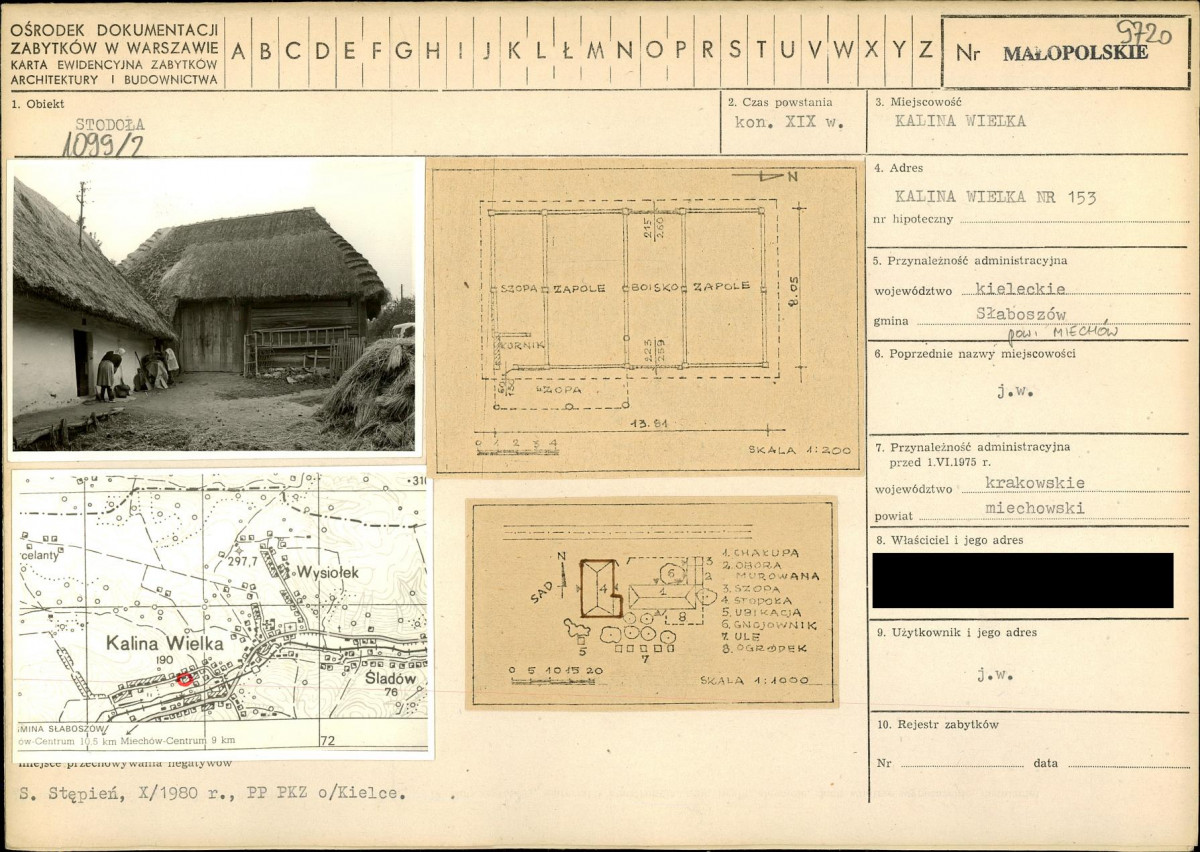 OŚRODEK DOKUMENTACJI
ZABYTKÓW W WARSZAWIE
KARTA EWIDENCYJNA ZABYTKÓW
ARCHITEKTURY I BUDOWNICTWA
A B C D E F G H I J K L Ł M N O P R S T U V W X Y Z
Nr MAŁOPOLSKIE
9720
1. Obiekt
STODOŁA
1099/2
2. Czas powstania
kon. XIX w.
3. Miejscowość
KALINA WIELKA
4. Adres
KALINA WIELKA NR 153
nr hipoteczny
5. Przynależność administracyjna
województwo kieleckie
gmina Słaboszów
pow. MIECHÓW
6. Poprzednie nazwy miejscowości
j.w.
7. Przynależność administracyjna
przed 1.VI.1975 r.
województwo krakowskie
powiat miechowski
8. Właściciel i jego adres
9. Użytkownik i jego adres
j.w.
10. Rejestr zabytków
Nr data
N
215
260
SZOPA ZAPOLE BOISKO ZAPOLE
8.05
KORNIK
225
259
SZOPA
13.81
0 1 2 3 4
SKALA 1:200
310
celanty
297,7
Wysiołek
Kalina Wielka
190
Śladów
76
GMINA SŁABOSZÓW
ów-Centrum 10,5 km Miechów-Centrum 9 km
72
N
SAD
4
6
3
2
1
8
5
7
1. CHAŁUPA
2. OBORA
MUROWANA
3. SZOPA
4. STODOŁA
5. UBIKACJA
6. GNOJOWNIK
7. ULE
8. OGRÓDEK
0 5 10 15 20
SKALA 1:1000
miejsce przechowywania negatywów
S. Stępień, X/1980 r., PP PKZ o/Kielce.